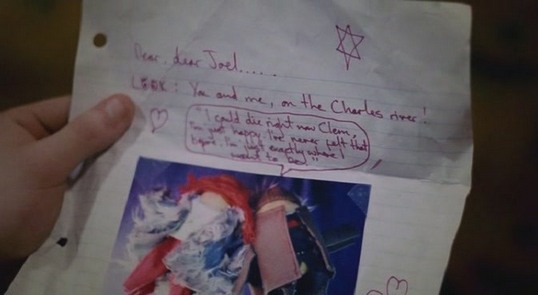 Dear, dear Joel.....
LOOK: You and me, on the Charles river!
"I could die right now Clem,
I'm just happy. I've never felt that
before. I'm just exactly where I
want to be."